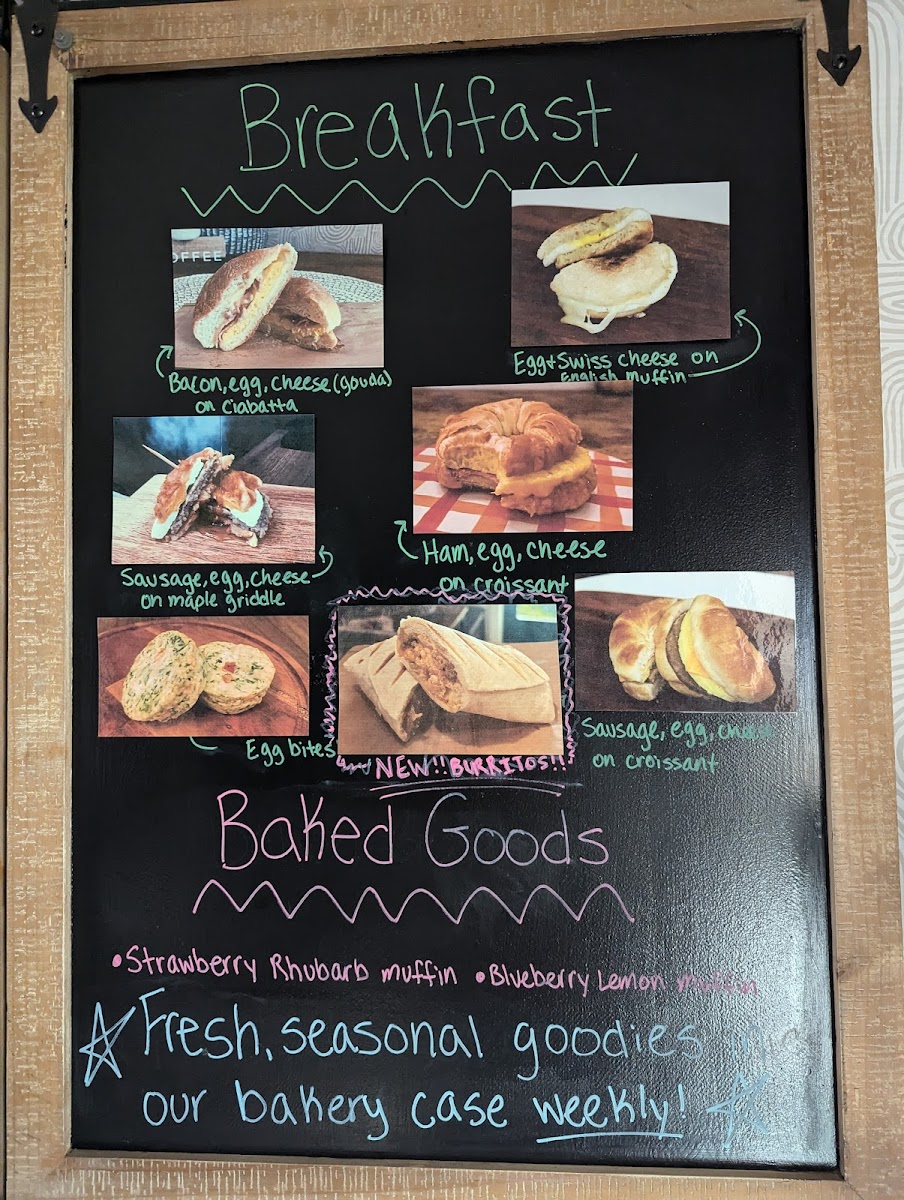 Breakfast
OFFEE
Bacon, egg, cheese (gouda)
on Ciabatta
Egg + Swiss cheese on
English muffin
Sausage, egg, cheese
on maple griddle
Ham, egg, cheese
on croissant
Egg bites
NEW!! BURRITOS!!
Sausage, egg, cheese
on croissant
Baked Goods
• Strawberry Rhubarb muffin • Blueberry Lemon muffin
Fresh, seasonal goodies in
our bakery case weekly!